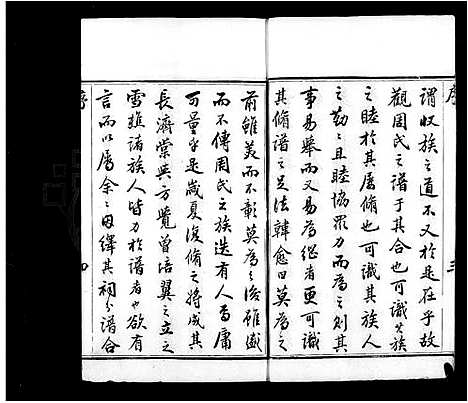 序 三
謂收族之道不又於是在乎故
觀周氏之譜于其合也可識其族
之睦於其屢脩也可識其族人
之勤之且睦協眾力而為之則其
事易舉而又易為繼者更可識
其脩譜之足法韓愈曰莫為之
前雖美而不彰莫為之後雖盛
而不傳周氏之族迭有人焉庸
可量乎是歲夏復脩之將成其
長濟棠與方覺曾培翼之立之
雪樵諸族人皆力於譜者也欲有
言而以屬余余因繹其祠分譜合
序 四